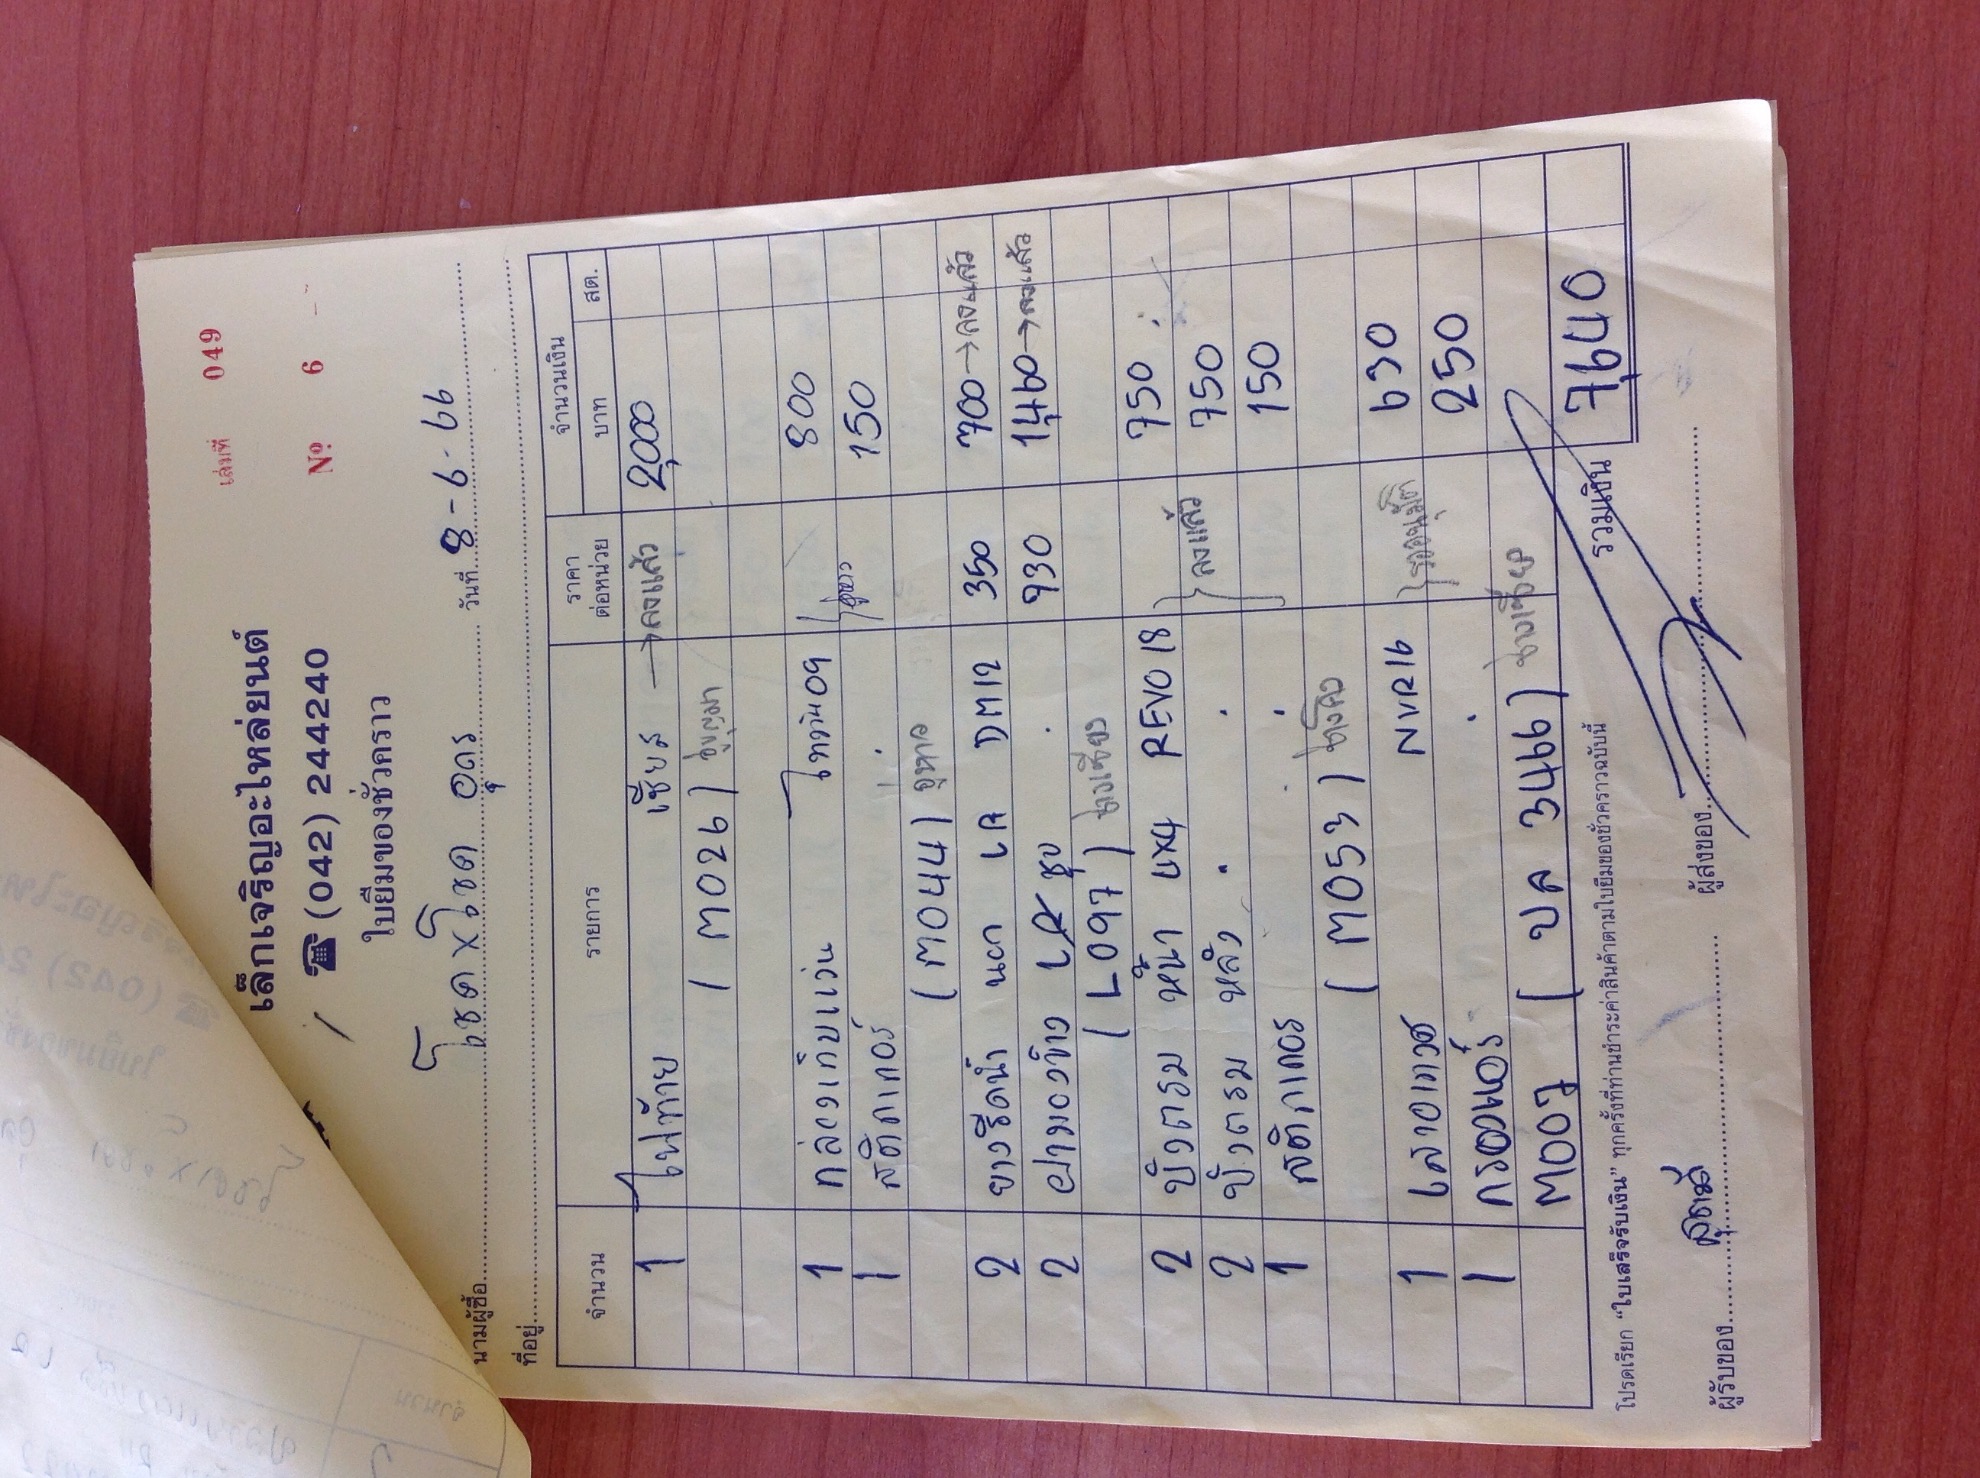 เล่มที่ 049
เล็กเจริญอะไหล่ยนต์
☎ (042) 244240
Nº 6
ใบยืมของชั่วคราว
นามผู้ซื้อ โชค x โชค อุดร วันที่ 8-6-66
ที่อยู่
จำนวน รายการ ราคาต่อหน่วย จำนวนเงิน
บาท สต.
1 ไฟท้าย →ลงแล้ว 2,000
( M026 )
1 กล่องเก็บแว่น ไทวิน 09 800
1 สติกเกอร์ 150
( M044 )
2 ยางรีดน้ำ นอก LR DM12 350 700 →ลงแล้ว
2 ฝามองข้าง LR ชุบ 930 1,460 →ลงแล้ว
( L097 )
2 บังตรม หน้า 4x4 REVO 18 750
2 บังตรม หลัง 750 ลงแล้ว
1 สติกเกอร 150
( M053 )
1 NVR16 630
1 250
M007 ( บล 3466 )
รวมเงิน 7,640
โปรดเรียก "ใบเสร็จรับเงิน" ทุกครั้งที่ท่านชำระค่าสินค้าตามใบยืมของชั่วคราวฉบับนี้
ผู้รับของ ผู้ส่งของ